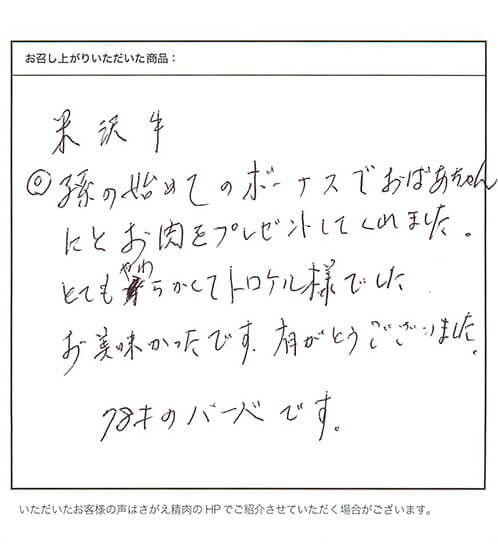 お召し上がりいただいた商品：
米沢牛
◎孫の始めてのボーナスでおばあちゃん
にとお肉をプレゼントしてくれました。
とてもやわらかくてトロケル様でした
お美味かったです。有がとうございました。
78才のバーバです。
いただいたお客様の声はさがえ精肉のHPでご紹介させていただく場合がございます。